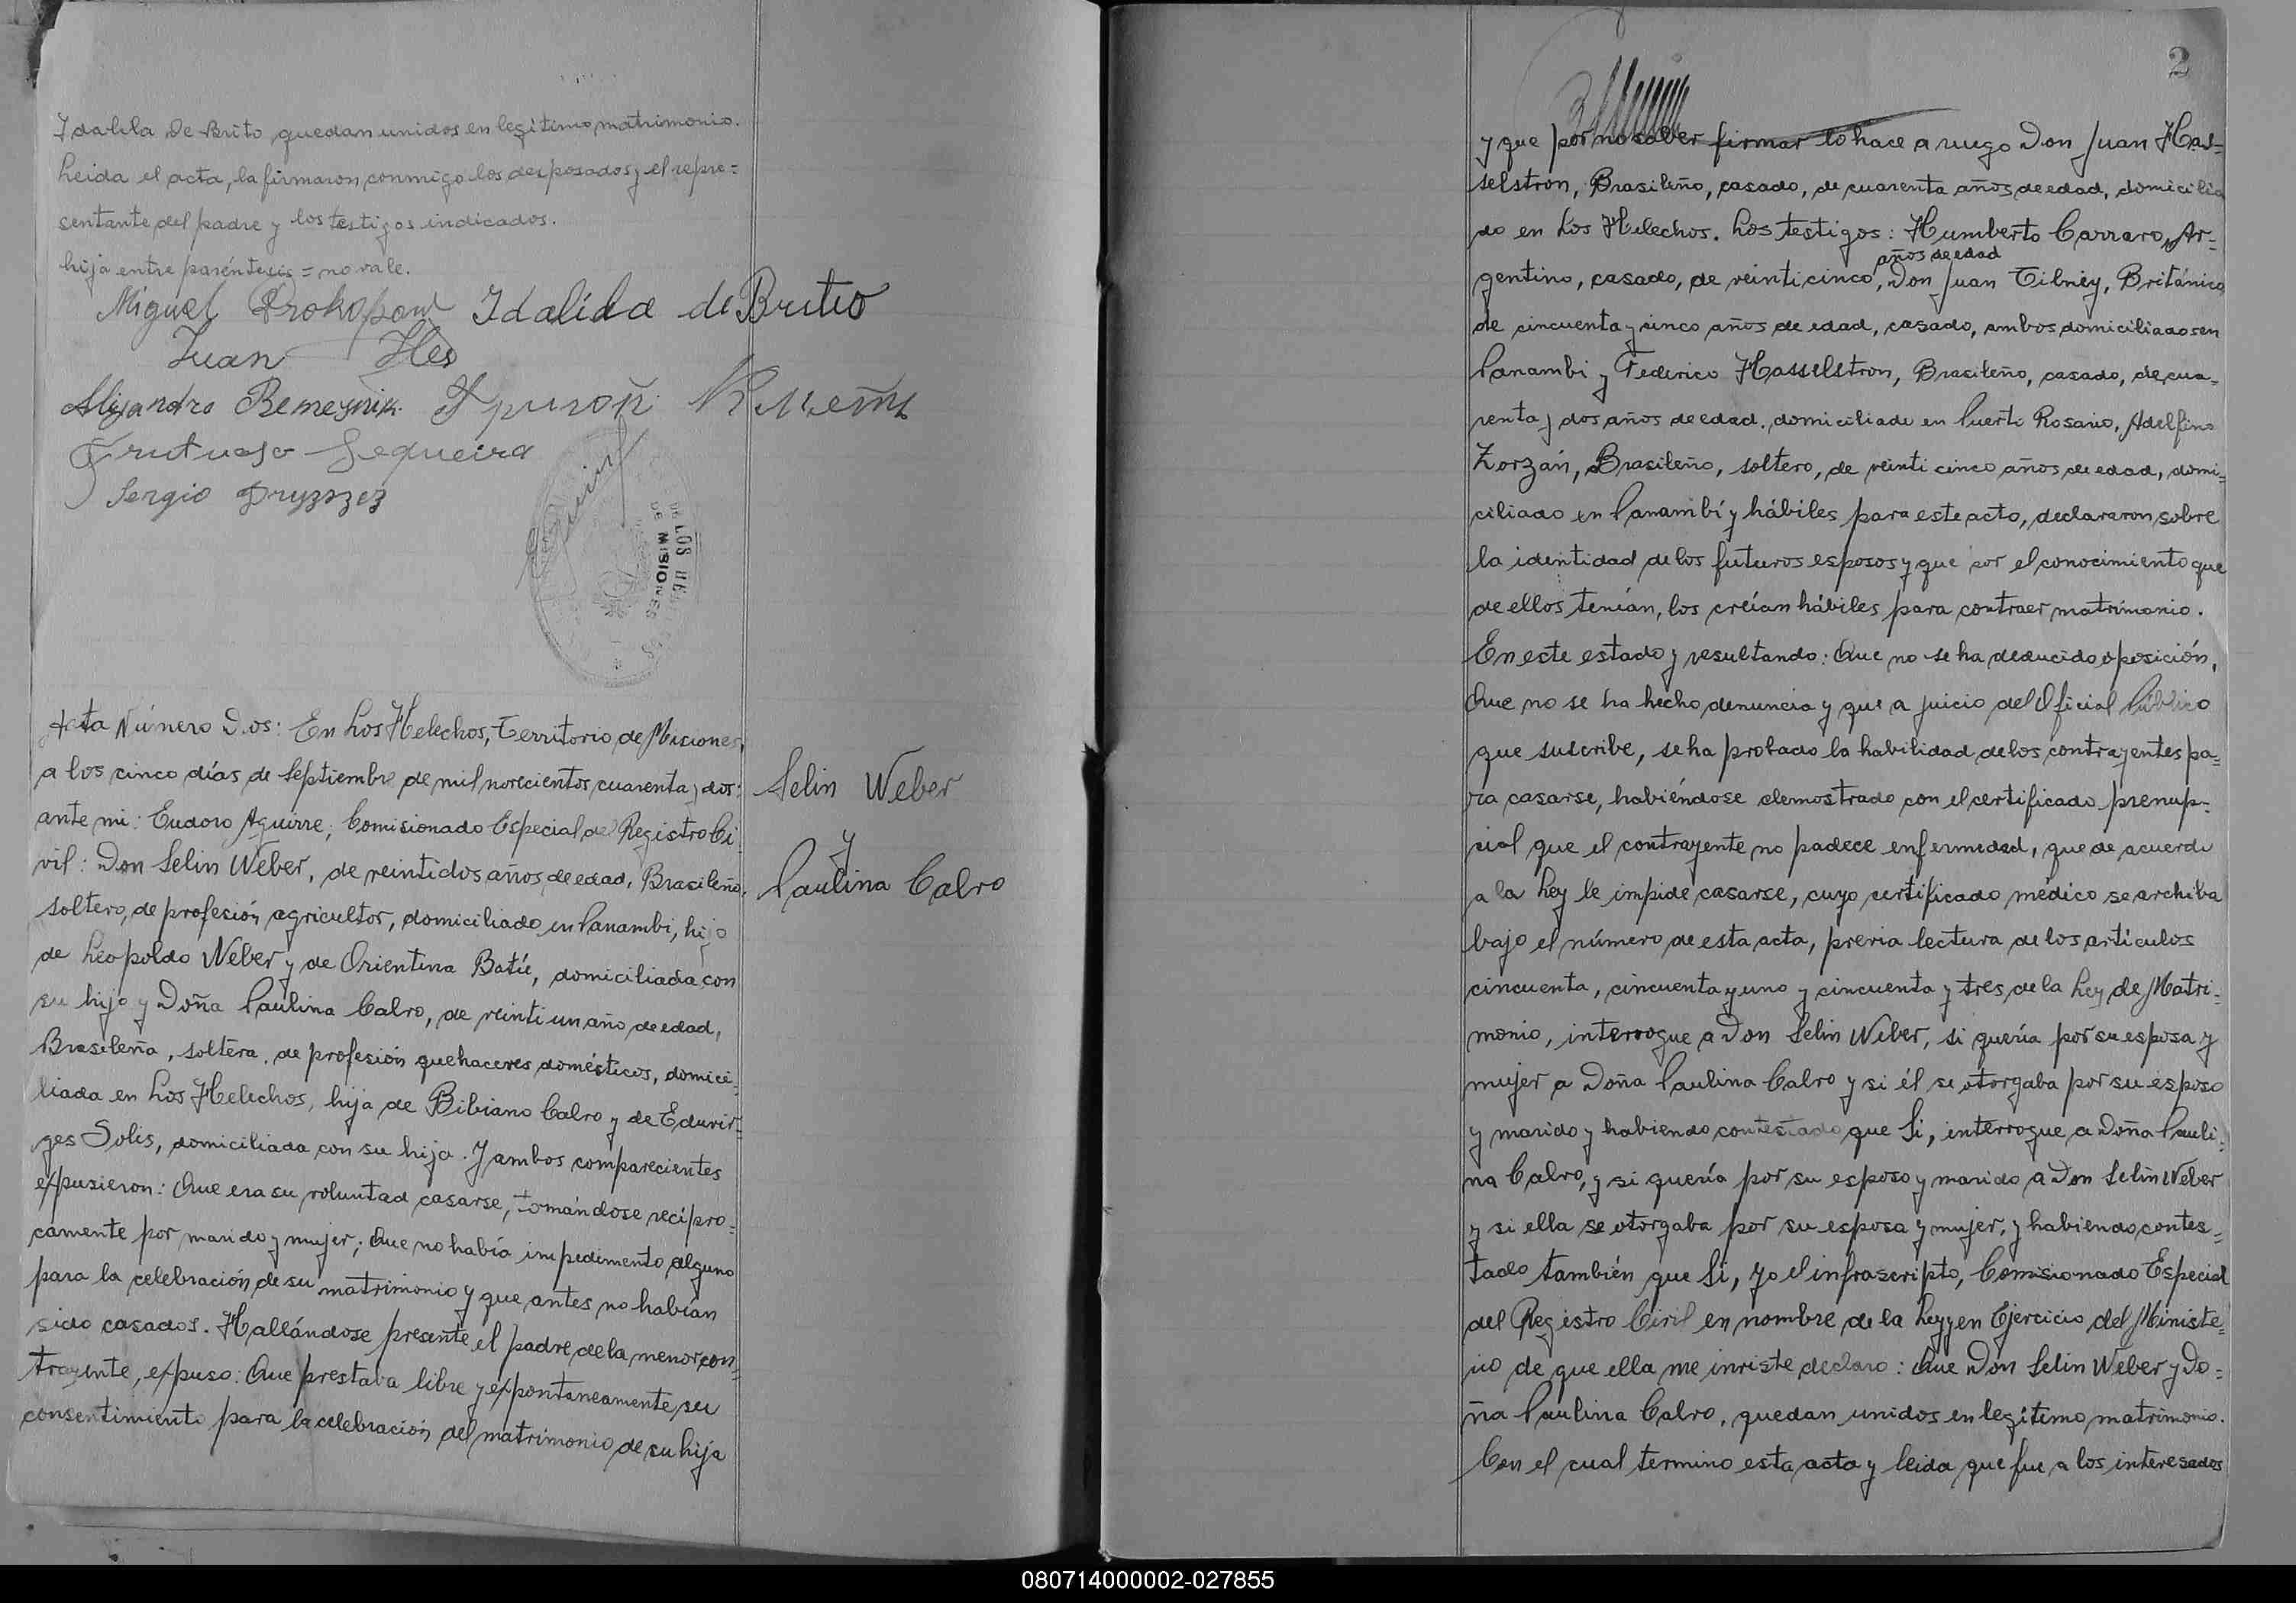 Idalila De Brito quedan unidos en legítimo matrimonio.
Leida el acta, la firmaron conmigo los desposados y el repre=
sentante del padre y los testigos indicados.
hija entre paréntesis = no vale.
Miguel Prokopow Idalida de Brito
Juan Iles
Alejandro
Frutuoso Sequeira
Sergio
DE LOS HE
DE MISIONES
Acta Número Dos: En Los Helechos, Territorio de Misiones,
a los cinco días de Septiembre de mil novecientos cuarenta y dos:
ante mi: Eudoro Aguirre, Comisionado Especial del Registro Ci=
vil: Don Selin Weber, de veintidos años de edad, Brasileño,
soltero, de profesión agricultor, domiciliado en Panambi, hijo
de Leopoldo Weber y de Orientina Batié, domiciliada con
su hijo y Doña Paulina Calvo, de veintiun año de edad,
Brasileña, soltera, de profesión quehaceres domésticos, domici=
liada en Los Helechos, hija de Bibiano Calvo y de Eduvir=
ges Solis, domiciliada con su hija. Y ambos comparecientes
expusieron: Que era su voluntad casarse, tomándose recípro=
camente por marido y mujer; Que no había impedimento alguno
para la celebración de su matrimonio y que antes no habían
sido casados. Hallándose presente el padre de la menor con=
trayente, expuso: Que prestaba libre y expontaneamente su
consentimiento para la celebración del matrimonio de su hija
Selin Weber
y
Paulina Calvo
2
y que por no saber firmar lo hace a ruego Don Juan Has=
selstron, Brasileño, casado, de cuarenta años de edad, domicilia
do en Los Helechos. Los testigos: Humberto Carraro, Ar=
años de edad
gentino, casado, de veinticinco, Don Juan Tilney, Británico
de cincuenta y cinco años de edad, casado, ambos domiciliados en
Panambi y Federico Hasselstron, Brasileño, casado, de cua=
renta y dos años de edad, domiciliado en Puerto Rosario, Adelfino
Zorzán, Brasileño, soltero, de veinticinco años de edad, domi=
ciliado en Panambí y hábiles para este acto, declararon sobre
la identidad de los futuros esposos y que por el conocimiento que
de ellos tenían, los creían hábiles para contraer matrimonio.
En este estado y resultando: Que no se ha deducido oposición,
Que no se ha hecho denuncia y que a juicio del Oficial Público
que suscribe, se ha probado la habilidad de los contrayentes pa=
ra casarse, habiéndose demostrado con el certificado prenup=
cial que el contrayente no padece enfermedad, que de acuerdo
a la Ley le impide casarse, cuyo certificado médico se archiba
bajo el número de esta acta, previa lectura de los artículos
cincuenta, cincuenta y uno y cincuenta y tres de la Ley de Matri=
monio, interrogue a Don Selin Weber, si quería por su esposa y
mujer a Doña Paulina Calvo y si él se otorgaba por su esposo
y marido y habiendo contestado que Si, interrogue a Doña Pauli=
na Calvo, y si quería por su esposo y marido a Don Selin Weber
y si ella se otorgaba por su esposa y mujer, y habiendo contes=
tado también que Si, yo el infrascripto, Comisionado Especial
del Registro Civil en nombre de la Ley y en Ejercicio del Ministe=
rio de que ella me inviste declaro: Que Don Selin Weber y Do=
ña Paulina Calvo, quedan unidos en legítimo matrimonio.
Con el cual termino esta acta y leida que fue a los interesados
080714000002-027855